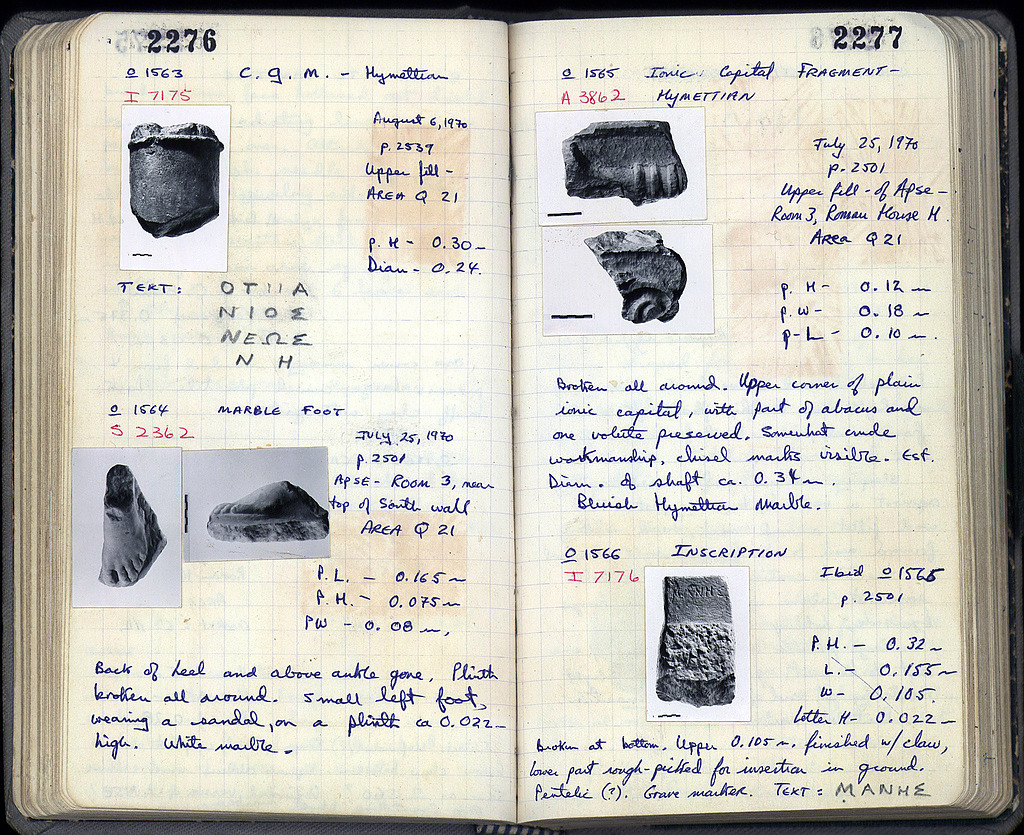 2276
o 1563 C. G. M. - Hymettian
I 7175
August 6, 1970
p. 2539
Upper fill -
AREA Q 21
P. H - 0.30 m
Diam - 0.24.
TEXT: ΟΤΙΙΑ
ΝΙΟΣ
ΝΕΩΣ
Ν Η
o 1564 MARBLE FOOT
S 2362
JULY 25, 1970
p. 2501
Apse - Room 3, near
top of South wall
AREA Q 21
P. L. - 0.165 m
P. H. - 0.075 m
PW - 0.08 m,
Back of heel and above ankle gone. Plinth
broken all around. Small left foot,
wearing a sandal, on a plinth ca 0.022 m
high. White marble.
2277
o 1565 Ionic Capital FRAGMENT -
A 3862 HYMETTIAN
July 25, 1970
p. 2501
Upper fill - of Apse -
Room 3, Roman House H.
Area Q 21
p. H - 0.12 m
p. W - 0.18 m
p - L - 0.10 m.
Broken all around. Upper corner of plain
ionic capital, with part of abacus and
one volute preserved. Somewhat crude
workmanship, chisel marks visible. Est.
Diam. of shaft ca. 0.34 m.
Bluish Hymettian Marble.
o 1566 INSCRIPTION
I 7176
Ibid o 1565
p. 2501
ΜΑΝΗΣ
P. H. - 0.32 m
L. - 0.155 m
W - 0.105.
Letter H - 0.022 m
Broken at bottom. Upper 0.105 m. finished w/ claw,
lower part rough-picked for insertion in ground.
Pentelic (?). Grave marker. TEXT: ΜΑΝΗΣ